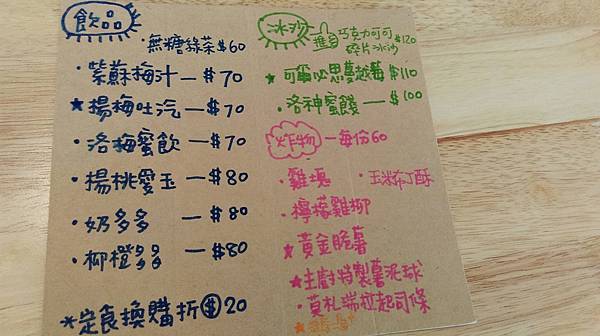 飲品
·無糖綠茶$60
·紫蘇梅汁—$70
★楊梅吐汽—$70
·洛梅蜜飲—$70
·楊桃愛玉—$80
·奶多多—$80
·柳橙多多—$80
*定食換購折$20
冰沙
推 巧克力可可碎片冰沙 $120
★可爾必思蔓越莓 $110
·洛神蜜餞—$100
炸物—每份60
·雞塊
·玉米布丁酥
·檸檬雞柳
★黃金脆薯
★主廚特製薯泥球
·莫札瑞拉起司條